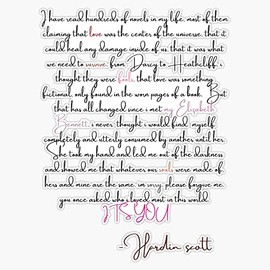 I have read hundreds of novels in my life, most of them
claiming that love was the center of the universe. that it
could heal any damage inside of us. that it was what
we need to survive. from Darcy to Heathcliff, i
thought they were fools. that love was something
fictional, only found in the worn pages of a book. But
that has all changed since i met my Elizabeth
Bennett. i never thought i would find myself
completely and utterly consumed by another until her.
She took my hand and led me out of the darkness
and showed me that whatever our souls were made of
hers and mine are the same. im sorry, please forgive me.
you once asked who i loved most in this world.
ITS YOU
-Hardin scott